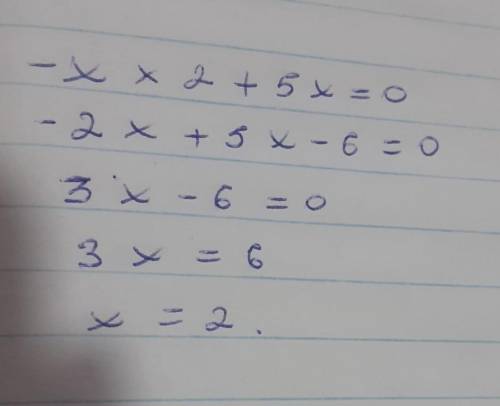 - x x 2 + 5x = 0
- 2x + 5x - 6 = 0
3x - 6 = 0
3x = 6
x = 2.